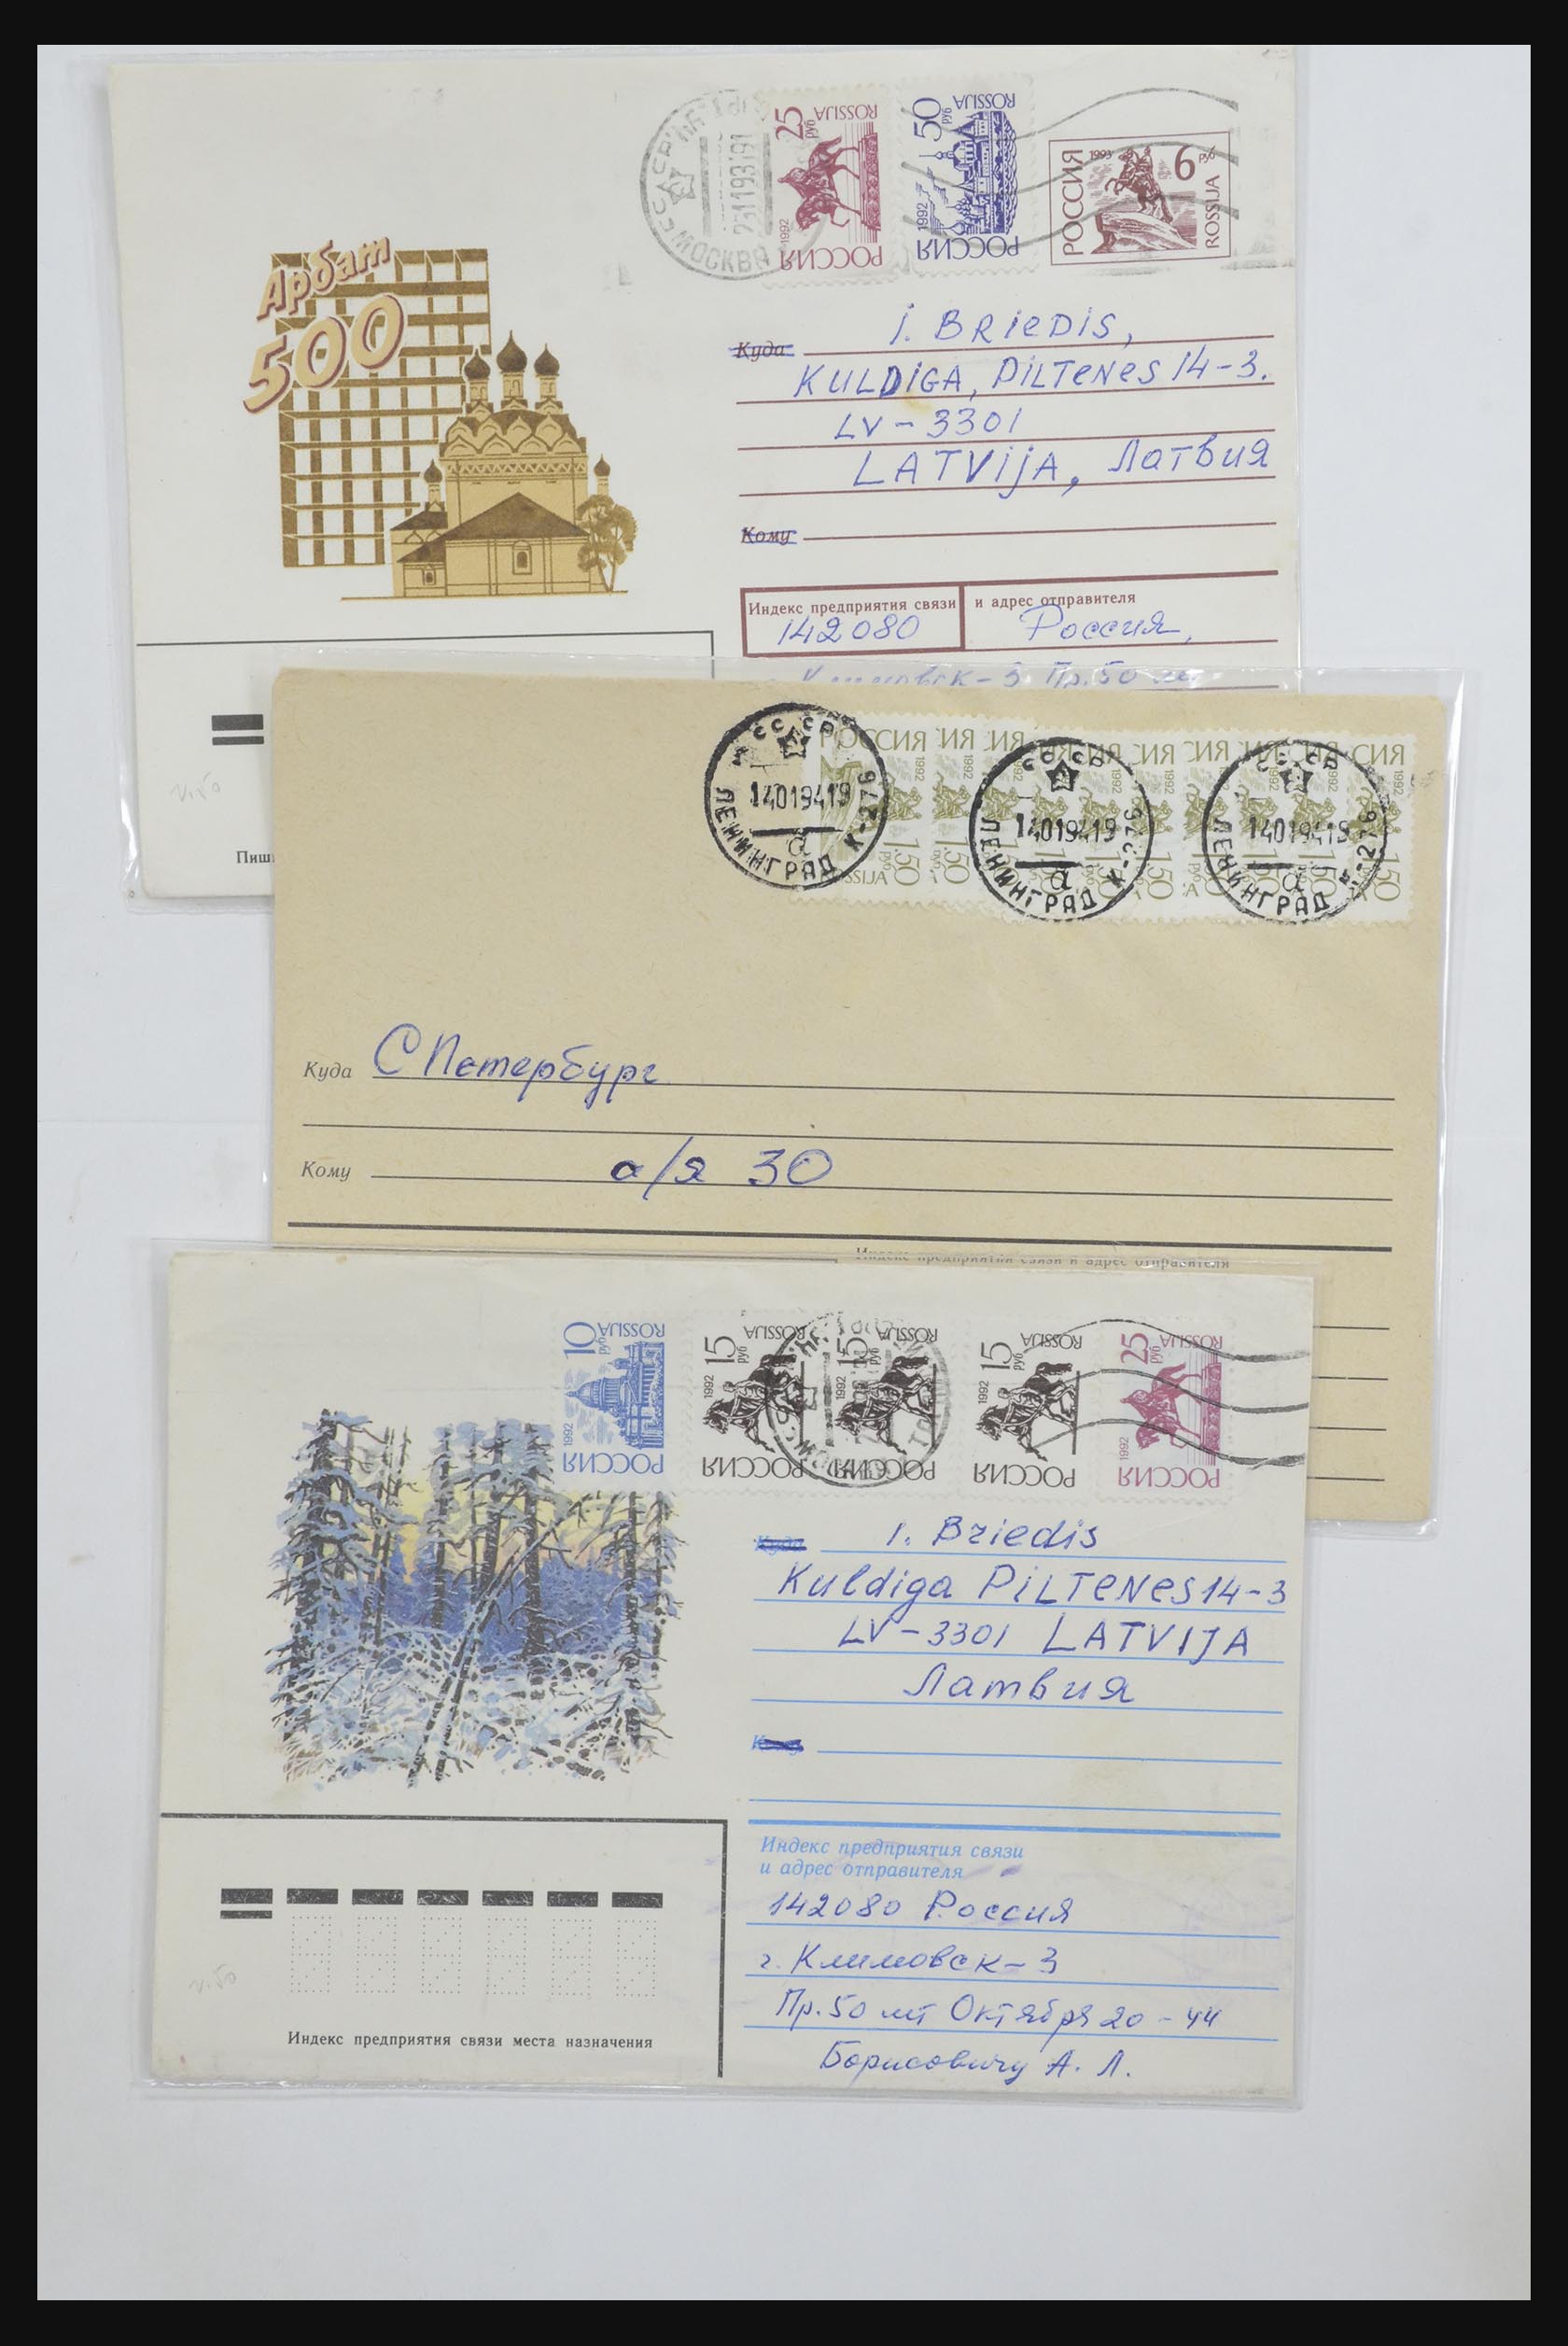 Арбат
500
МОСКВА
25 руб
ROSSIJA
1992
РОССИЯ
50 руб
ROSSIJA
1992
РОССИЯ
РОССИЯ
1993
6 руб
ROSSIJA
Куда
I. BRIEDIS,
KULDIGA, PILTENES 14-3.
LV-3301
LATVIJA, Латвия
Кому
Индекс предприятия связи и адрес отправителя
142080 Россия,
Климовск-3 Пр.50 лет
Пиш
СССР
14019419
а
ЛЕНИНГРАД К-276
СССР
14019419
а
ЛЕНИНГРАД К-276
СССР
14019419
а
ЛЕНИНГРАД К-276
РОССИЯ
1992
1.50
Куда С Петербург
Кому а/я 30
Индекс предприятия связи и адрес отправителя
10 руб
ROSSIJA
1992
РОССИЯ
15 руб
ROSSIJA
1992
РОССИЯ
15 руб
ROSSIJA
1992
РОССИЯ
15 руб
ROSSIJA
1992
РОССИЯ
25 руб
ROSSIJA
1992
РОССИЯ
I. Briedis
Kuldiga PILTENES 14-3
LV-3301 LATVIJA
Латвия
Индекс предприятия связи
и адрес отправителя
142080 Россия
г. Климовск-3
Пр.50 лет Октября 20-44
Борисовичу А. Л.
Индекс предприятия связи места назначения